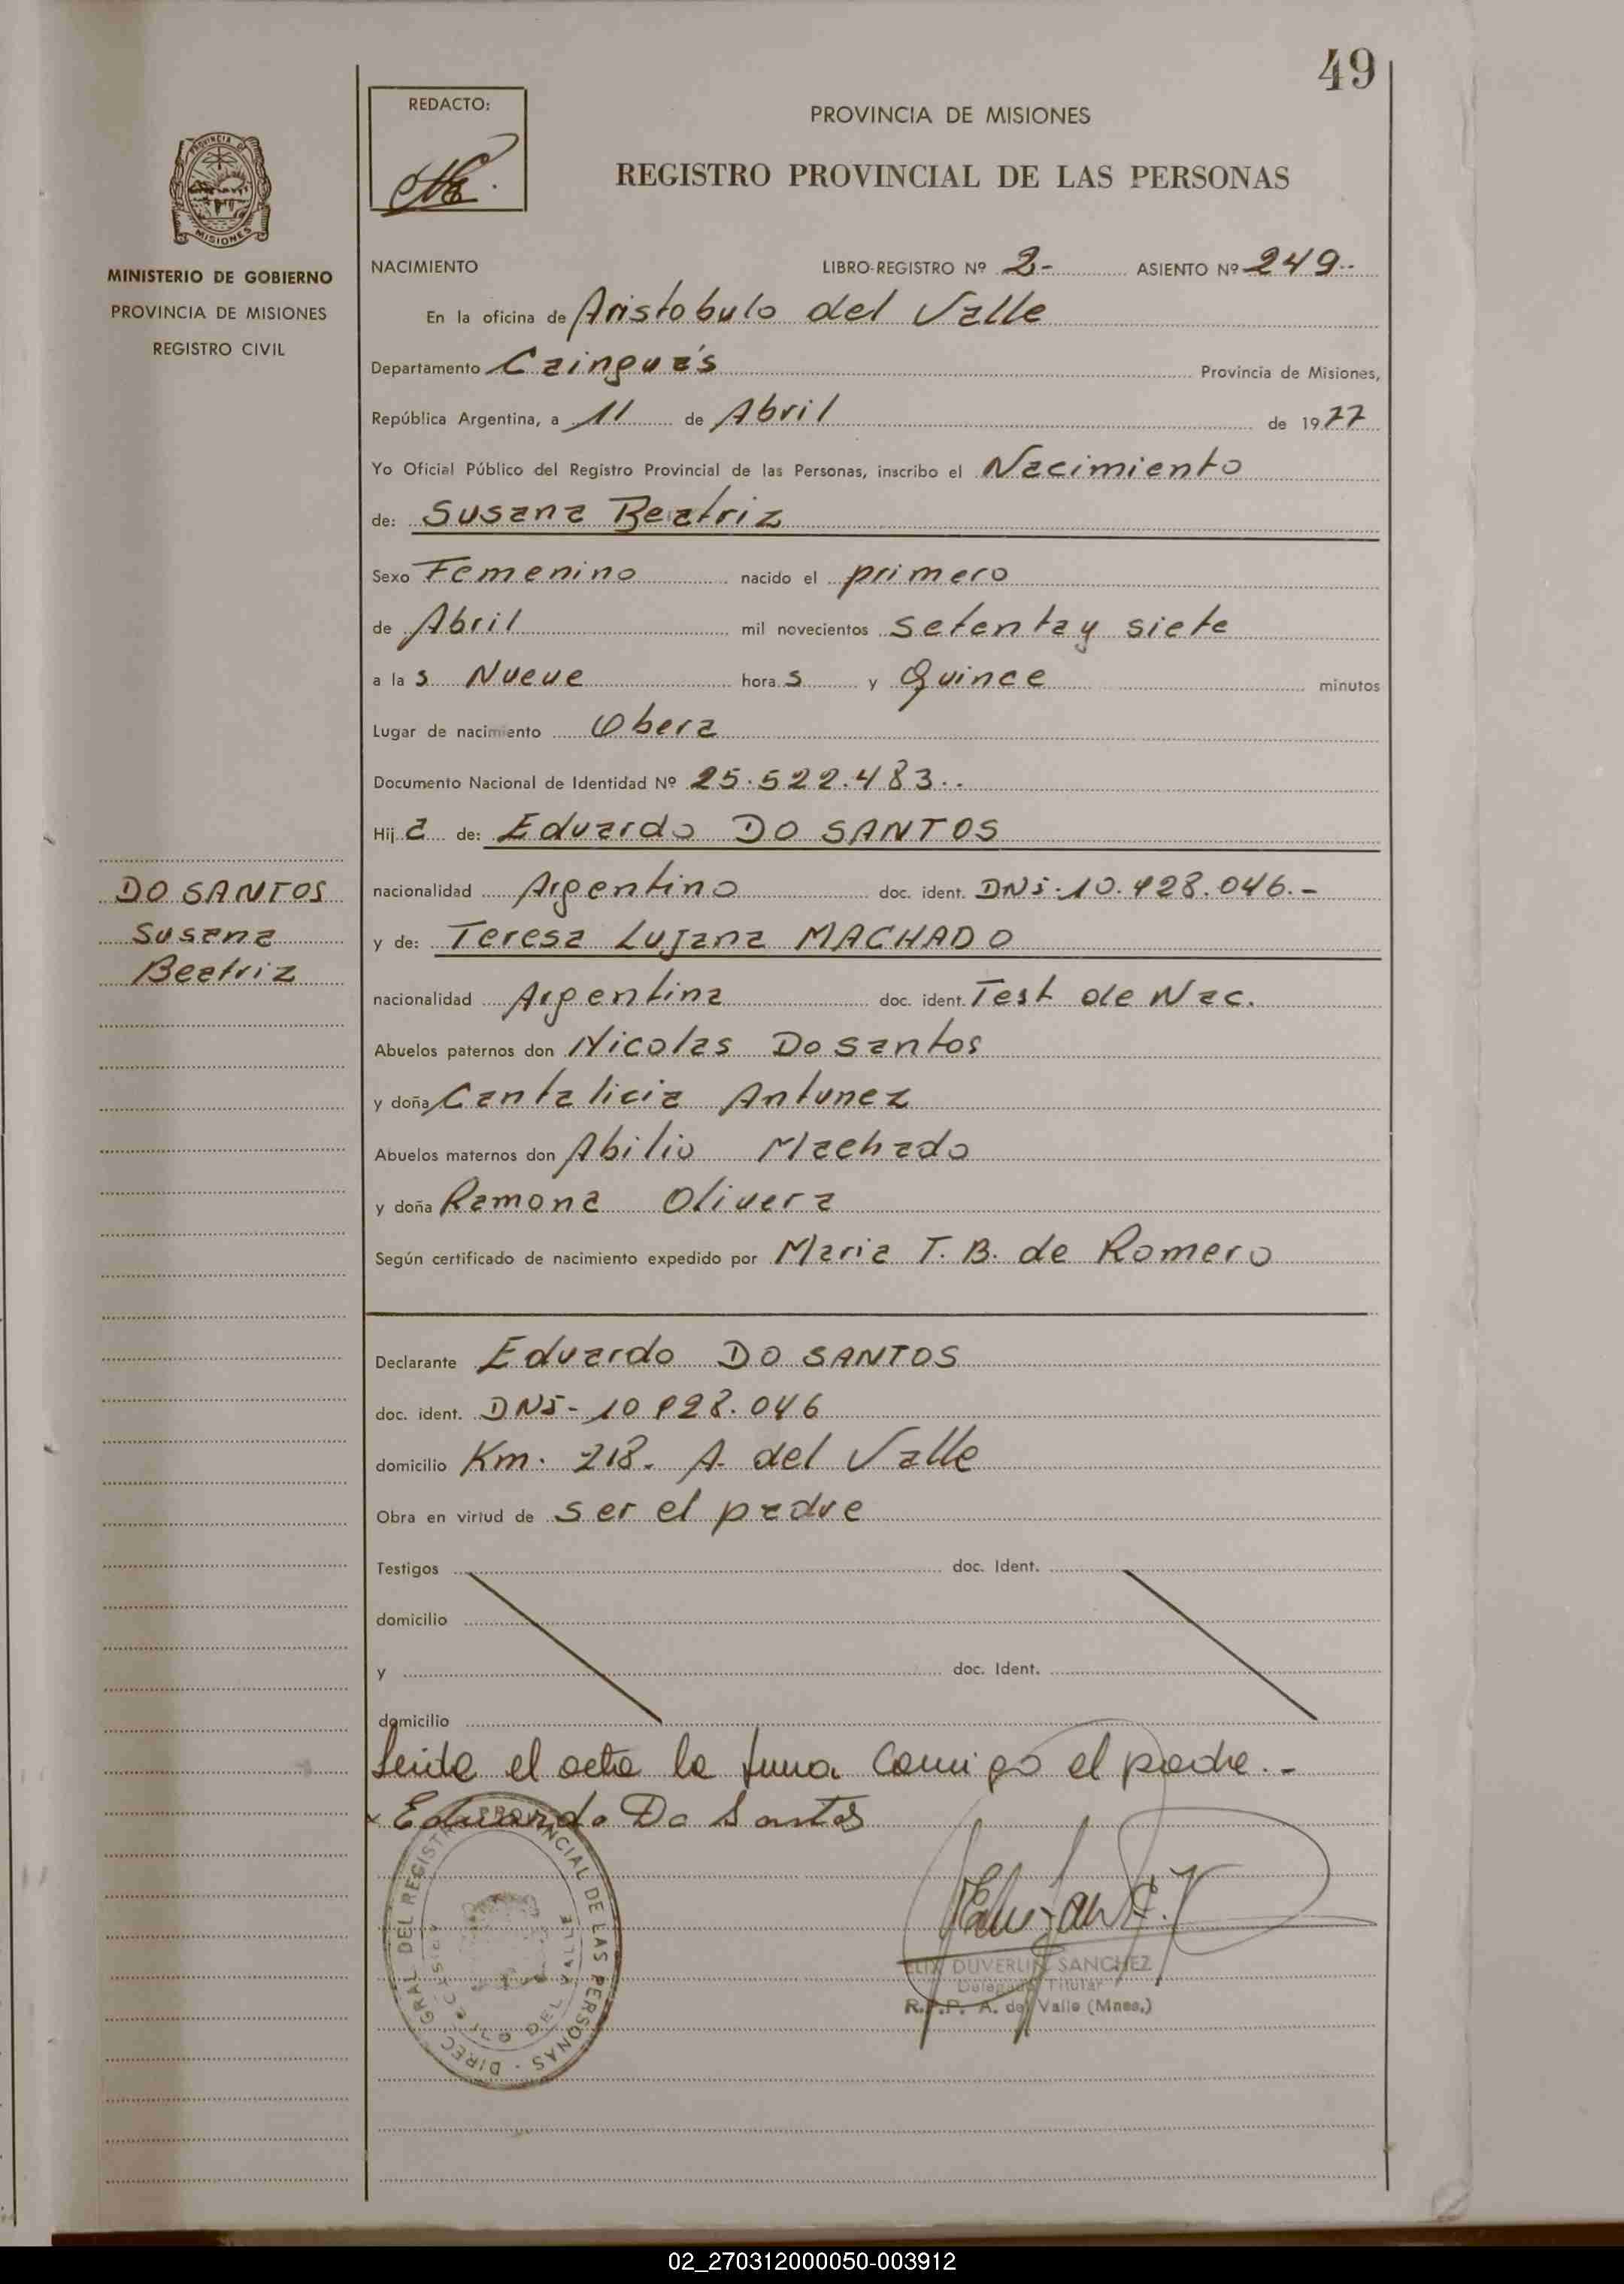 49
REDACTO:
PROVINCIA DE MISIONES
REGISTRO PROVINCIAL DE LAS PERSONAS
PROVINCIA DE
MISIONES
MINISTERIO DE GOBIERNO
PROVINCIA DE MISIONES
REGISTRO CIVIL
NACIMIENTO LIBRO-REGISTRO Nº 2- ASIENTO Nº 249..
En la oficina de Aristobulo del Valle
Departamento Cainguás Provincia de Misiones,
República Argentina, a 11 de Abril de 1977
Yo Oficial Público del Registro Provincial de las Personas, inscribo el Nacimiento
de: Susana Beatriz
Sexo Femenino nacido el primero
de Abril mil novecientos setenta y siete
a la s Nueve hora s y Quince minutos
Lugar de nacimiento Obera
Documento Nacional de Identidad Nº 25.522.483..
Hij a de: Eduardo DO SANTOS
DO SANTOS
Susana
Beatriz
nacionalidad Argentino doc. ident. DNI-10.928.046.-
y de: Teresa Lujana MACHADO
nacionalidad Argentina doc. ident. Test de Nac.
Abuelos paternos don Nicolas Do santos
y doña Cantalicia Antunez
Abuelos maternos don Abilio Machado
y doña Ramona Olivera
Según certificado de nacimiento expedido por Maria T. B. de Romero
Declarante Eduardo DO SANTOS
doc. ident. DNI- 10 928.046
domicilio Km. 218. A. del Valle
Obra en virtud de ser el padre
Testigos doc. Ident.
domicilio
y doc. Ident.
domicilio
Leida el acta la firma Conmigo el padre.-
x Eduardo Do Santos
DIREC. GRAL DEL REGISTRO PROVINCIAL DE LAS PERSONAS
DEL VALLE
FELIX DUVERLIN SANCHEZ
Delegado Titular
R.P.P. A. del Valle (Mnes.)
02_270312000050-003912